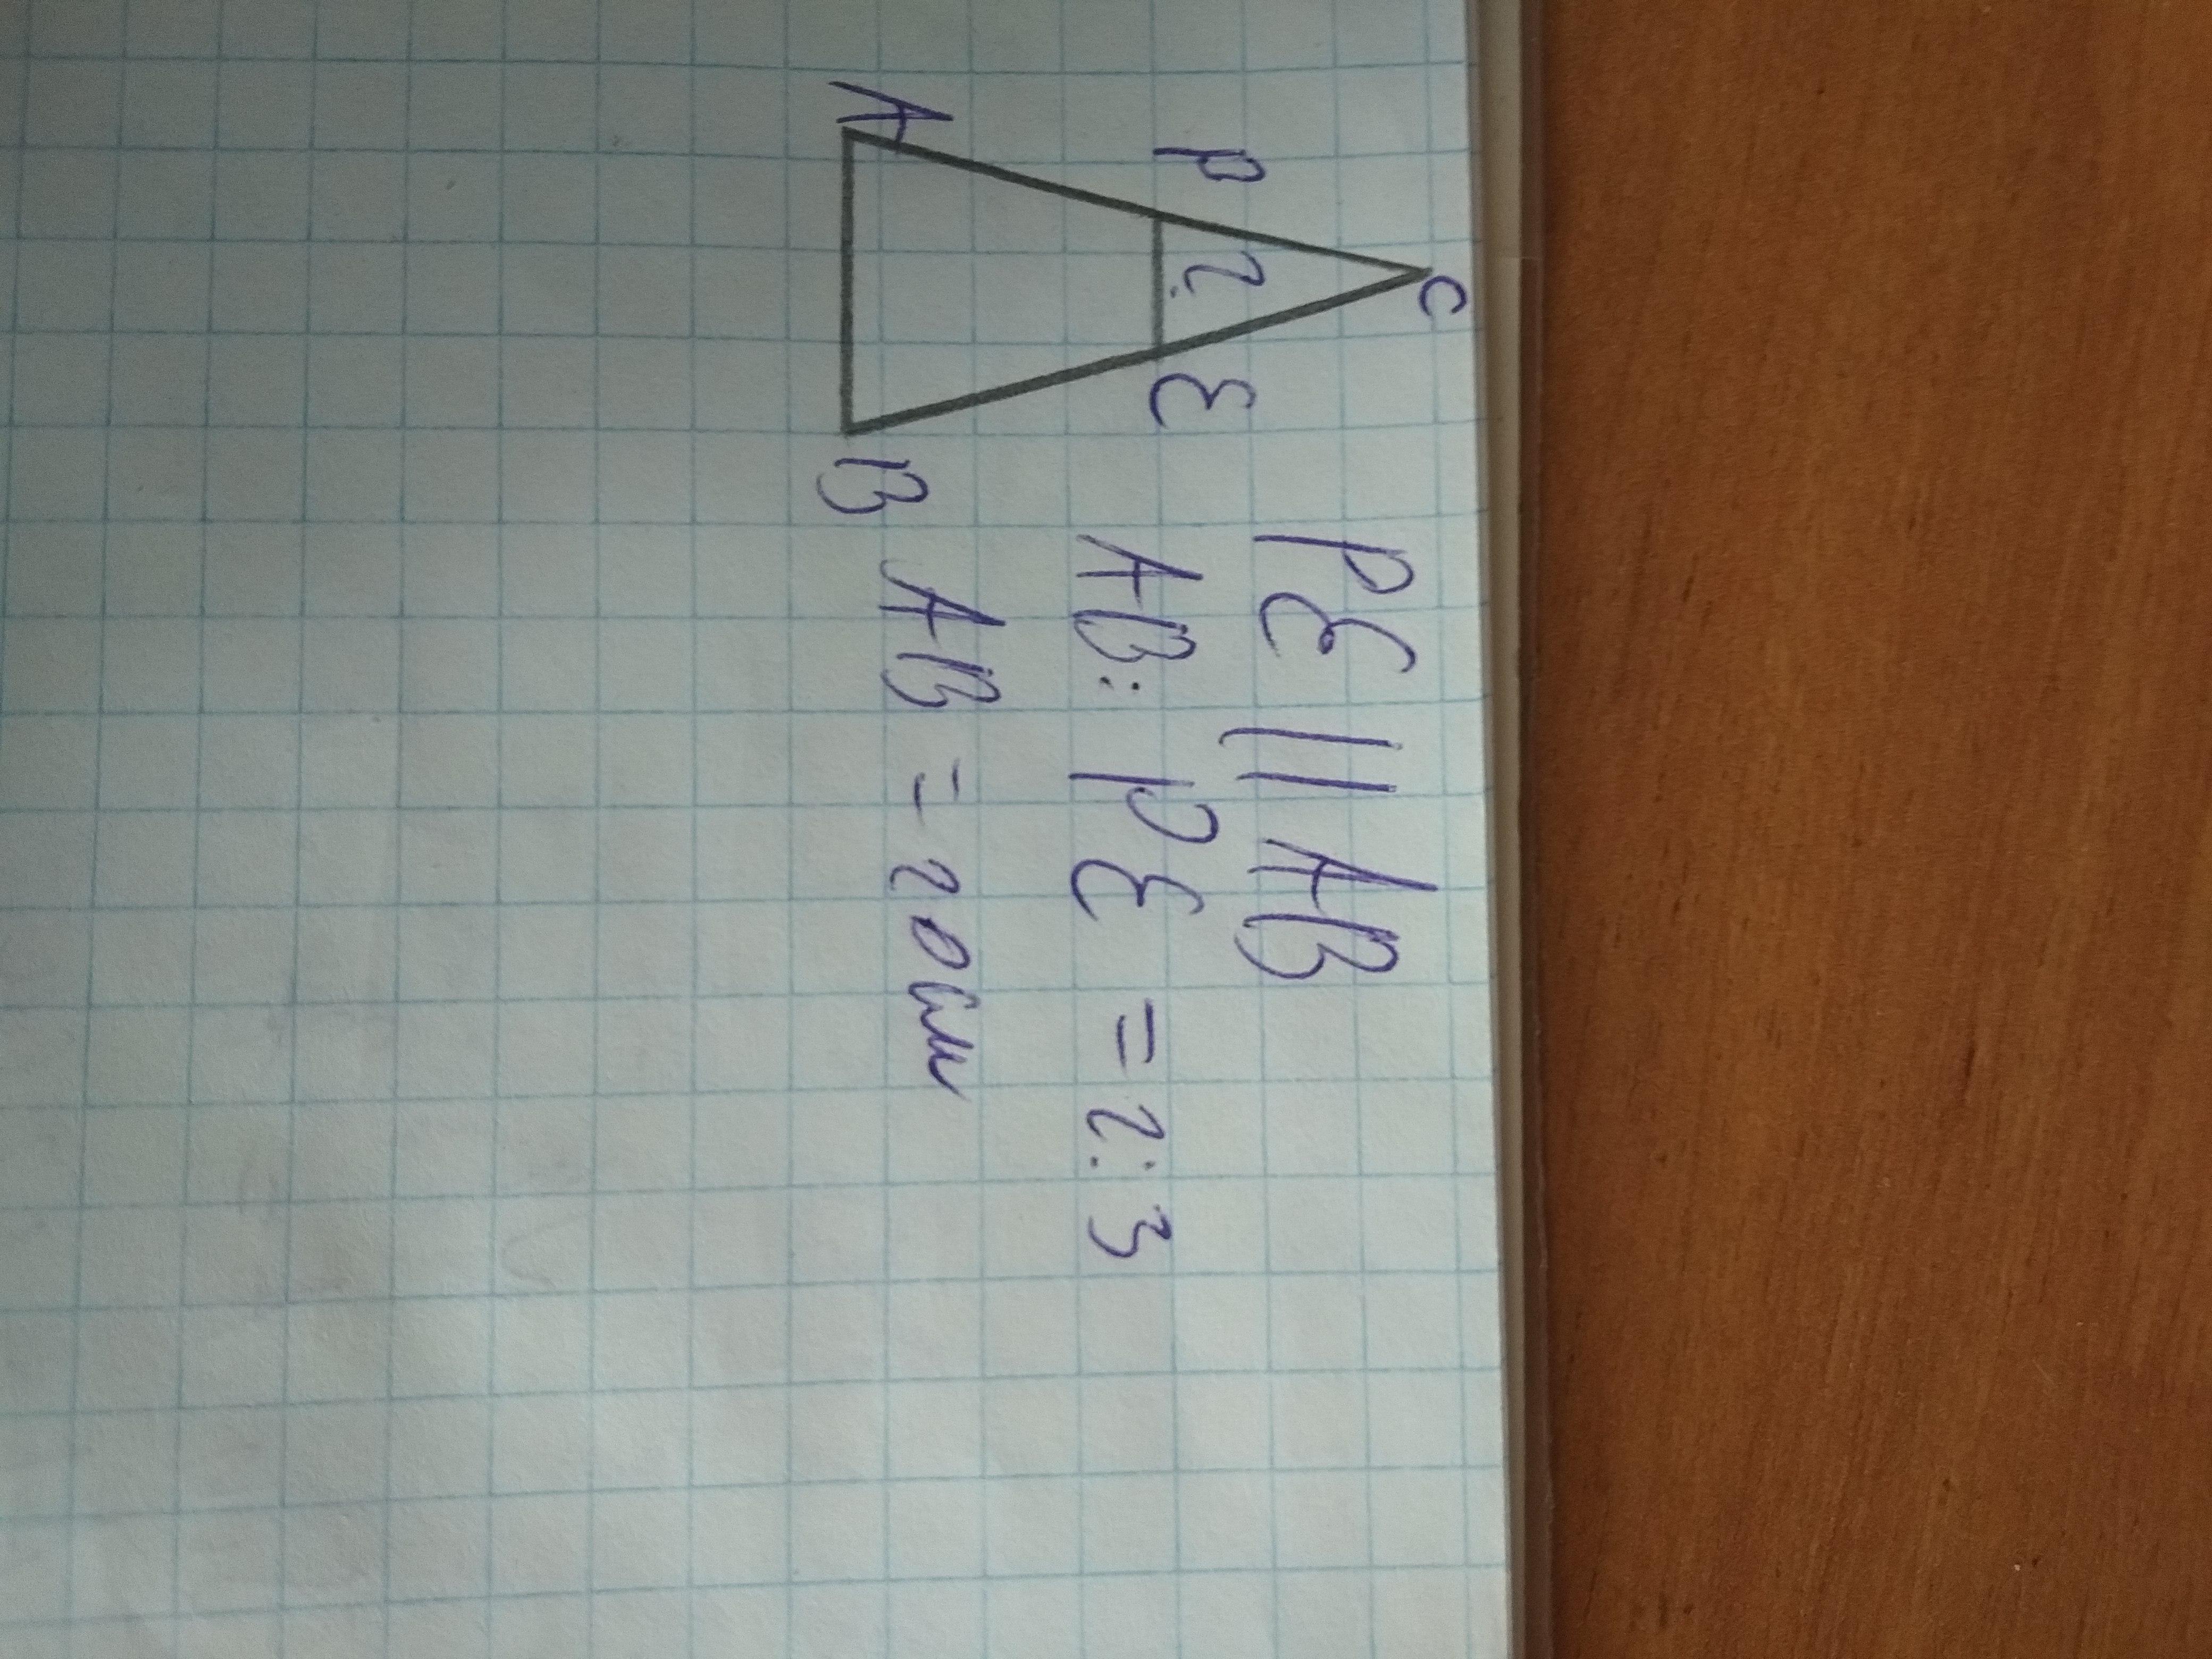 C
P ? E
A B
PE || AB
AB : PE = 2:3
AB = 20см